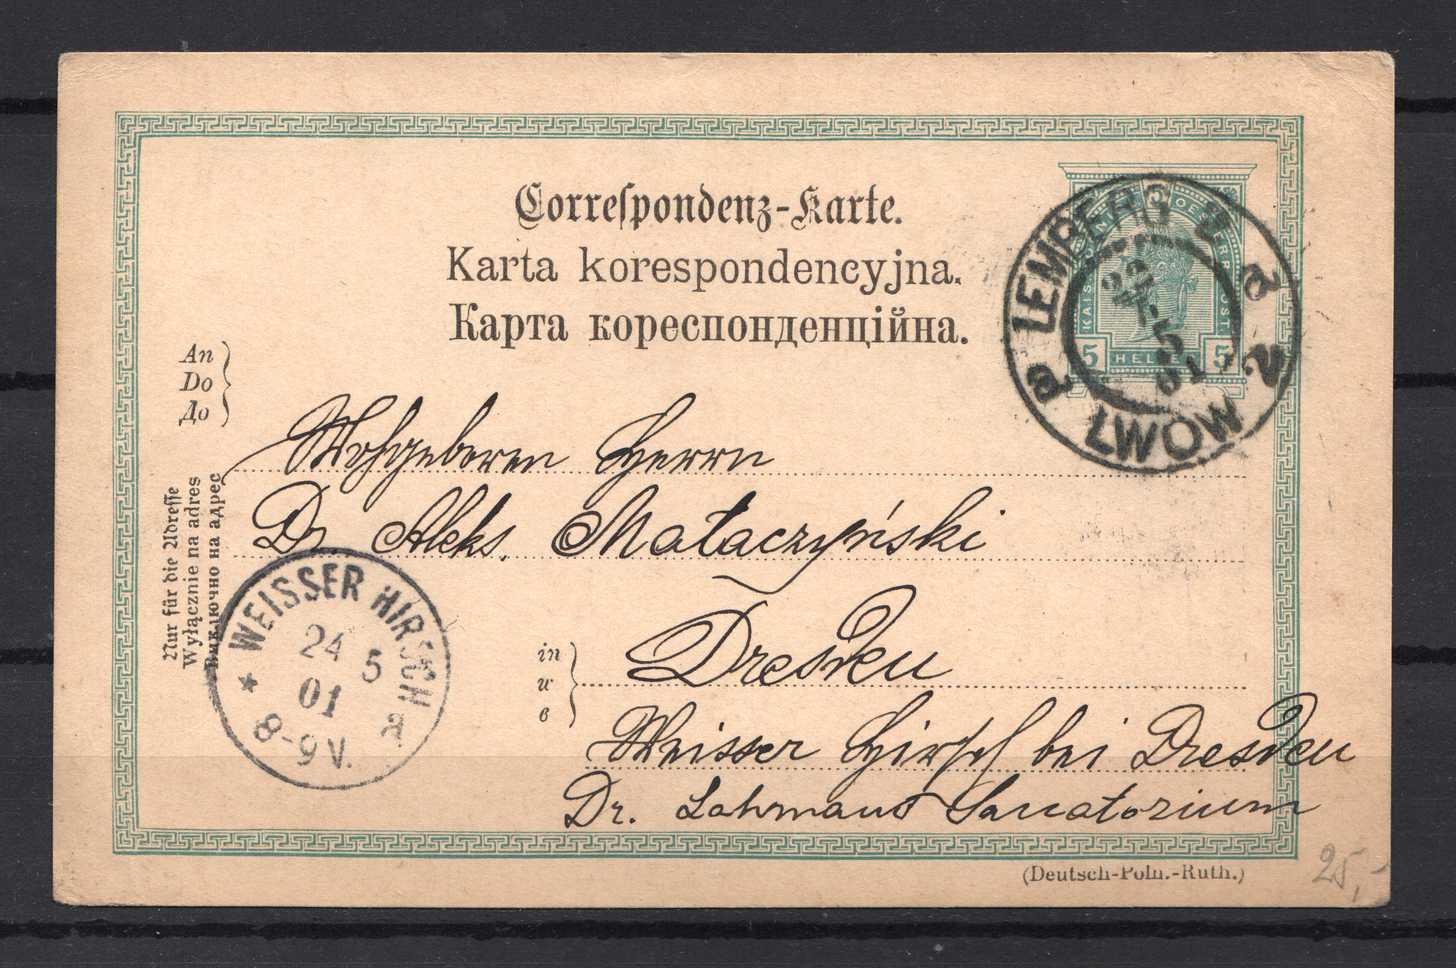 Correſpondenz-Karte.
Karta korespondencyjna.
Карта кореспонденційна.
KAIS. OESTERR. POST.
5 HELLER 5
LEMBERG 2
LWÓW 2
22
5
01
An
Do
До
Wohlgeboren Herrn
Dr. Aleks. Małaczyński
Nur für die Adreſſe
Wyłącznie na adres
Виключно на адрес
WEISSER HIRSCH
24 5
01
* 8-9 V. a
in
w
в
Dresden
Weisser Hirsch bei Dresden
Dr. Lahmans Sanatorium
(Deutsch-Poln.-Ruth.)
25,-